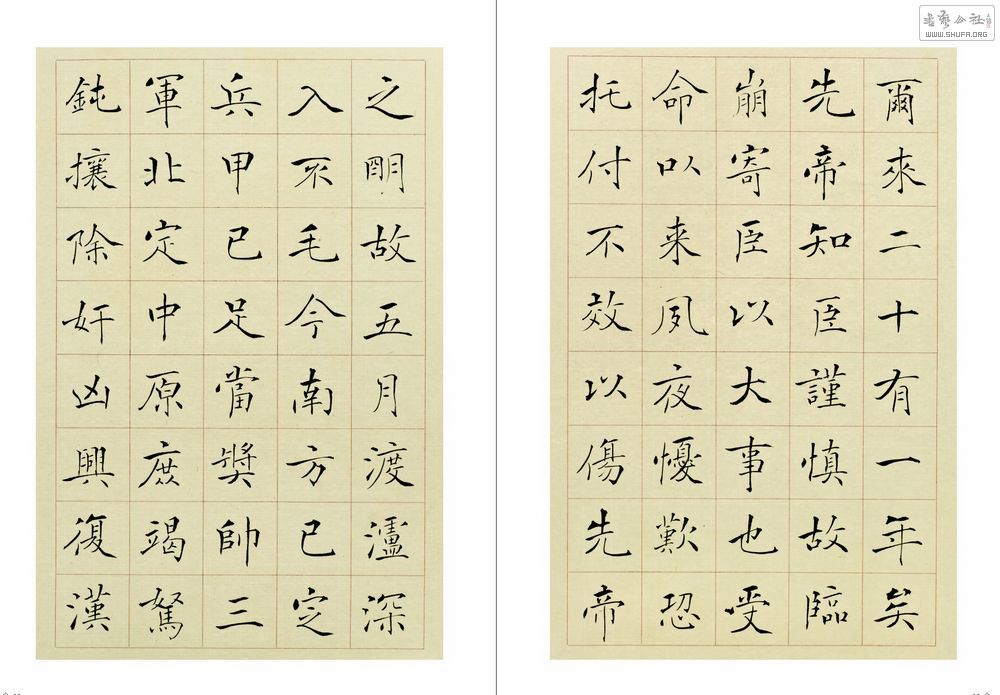 爾來二十有一年矣
先帝知臣謹慎故臨
崩寄臣以大事也受
命以来夙夜憂歎恐
托付不效以傷先帝
之明故五月渡瀘深
入不毛今南方已定
兵甲已足當獎帥三
軍北定中原庶竭駑
鈍攘除奸凶興復漢
書藝公社
WWW.SHUFA.ORG